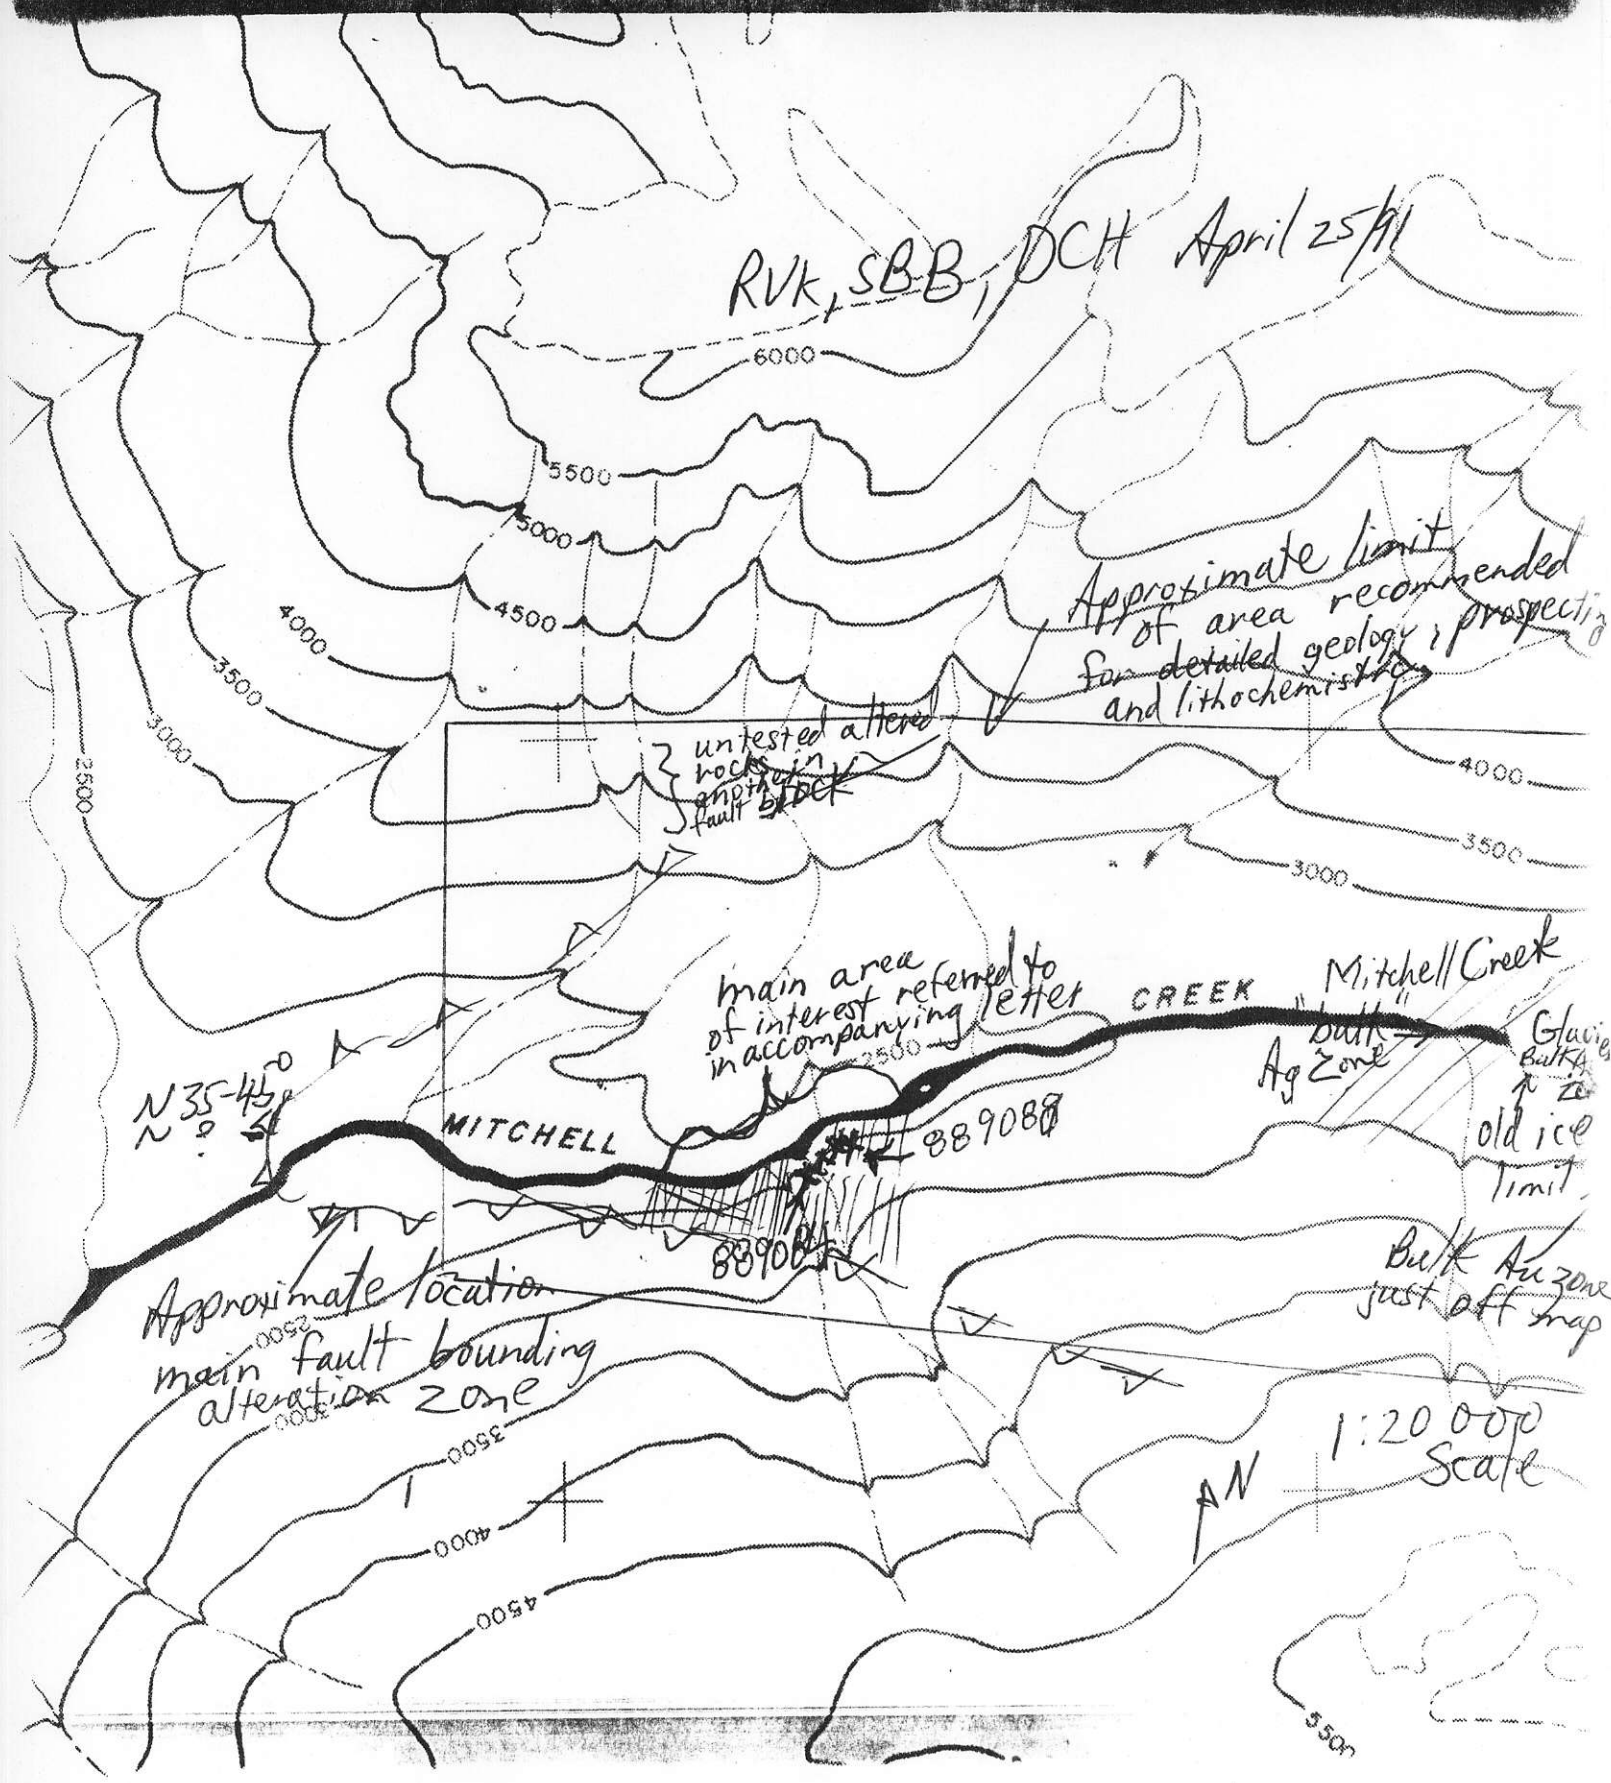 RVK, SBB, DCH April 25/91
6000
5500
5000
4500
4000
3500
3000
2500
Approximate limit
of area recommended
for detailed geology, prospecting
and lithochemistry
untested altered
rocks in
another
fault block
4000
3500
3000
main area
of interest referred to
in accompanying letter
2500
CREEK
Mitchell Creek
"bulk"
Ag Zone
Glacier
old ice
limit
N 35-45
MITCHELL
Bulk Au zone
just off map
Approximate location
2500
main fault bounding
alteration zone
3000
3500
4000
4500
1:20 000
Scale
N
5500